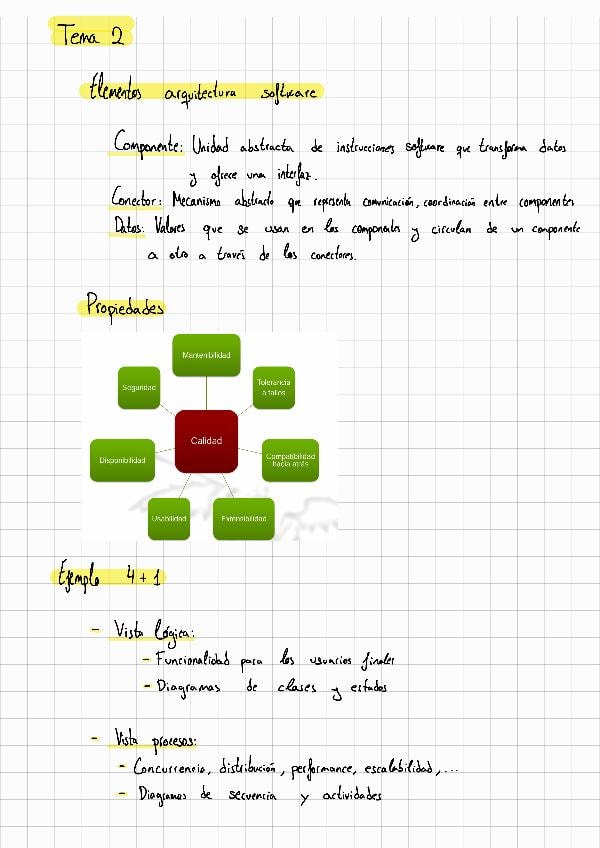 Tema 2
Elementos arquitectura software
Componente: Unidad abstracta de instrucciones software que transforma datos
y ofrece una interfaz.
Conector: Mecanismo abstracto que representa comunicación, coordinación entre componentes
Datos: Valores que se usan en los componentes y circulan de un componente
a otro a través de los conectores.
Propiedades
Mantenibilidad
Seguridad
Tolerancia
a fallos
Calidad
Disponibilidad
Compatibilidad
hacia atrás
Usabilidad
Extensibilidad
Ejemplo 4+1
- Vista lógica:
- Funcionalidad para los usuarios finales
- Diagramas de clases y estados
- Vista procesos:
- Concurrencia, distribución, performance, escalabilidad,...
- Diagramas de secuencia y actividades